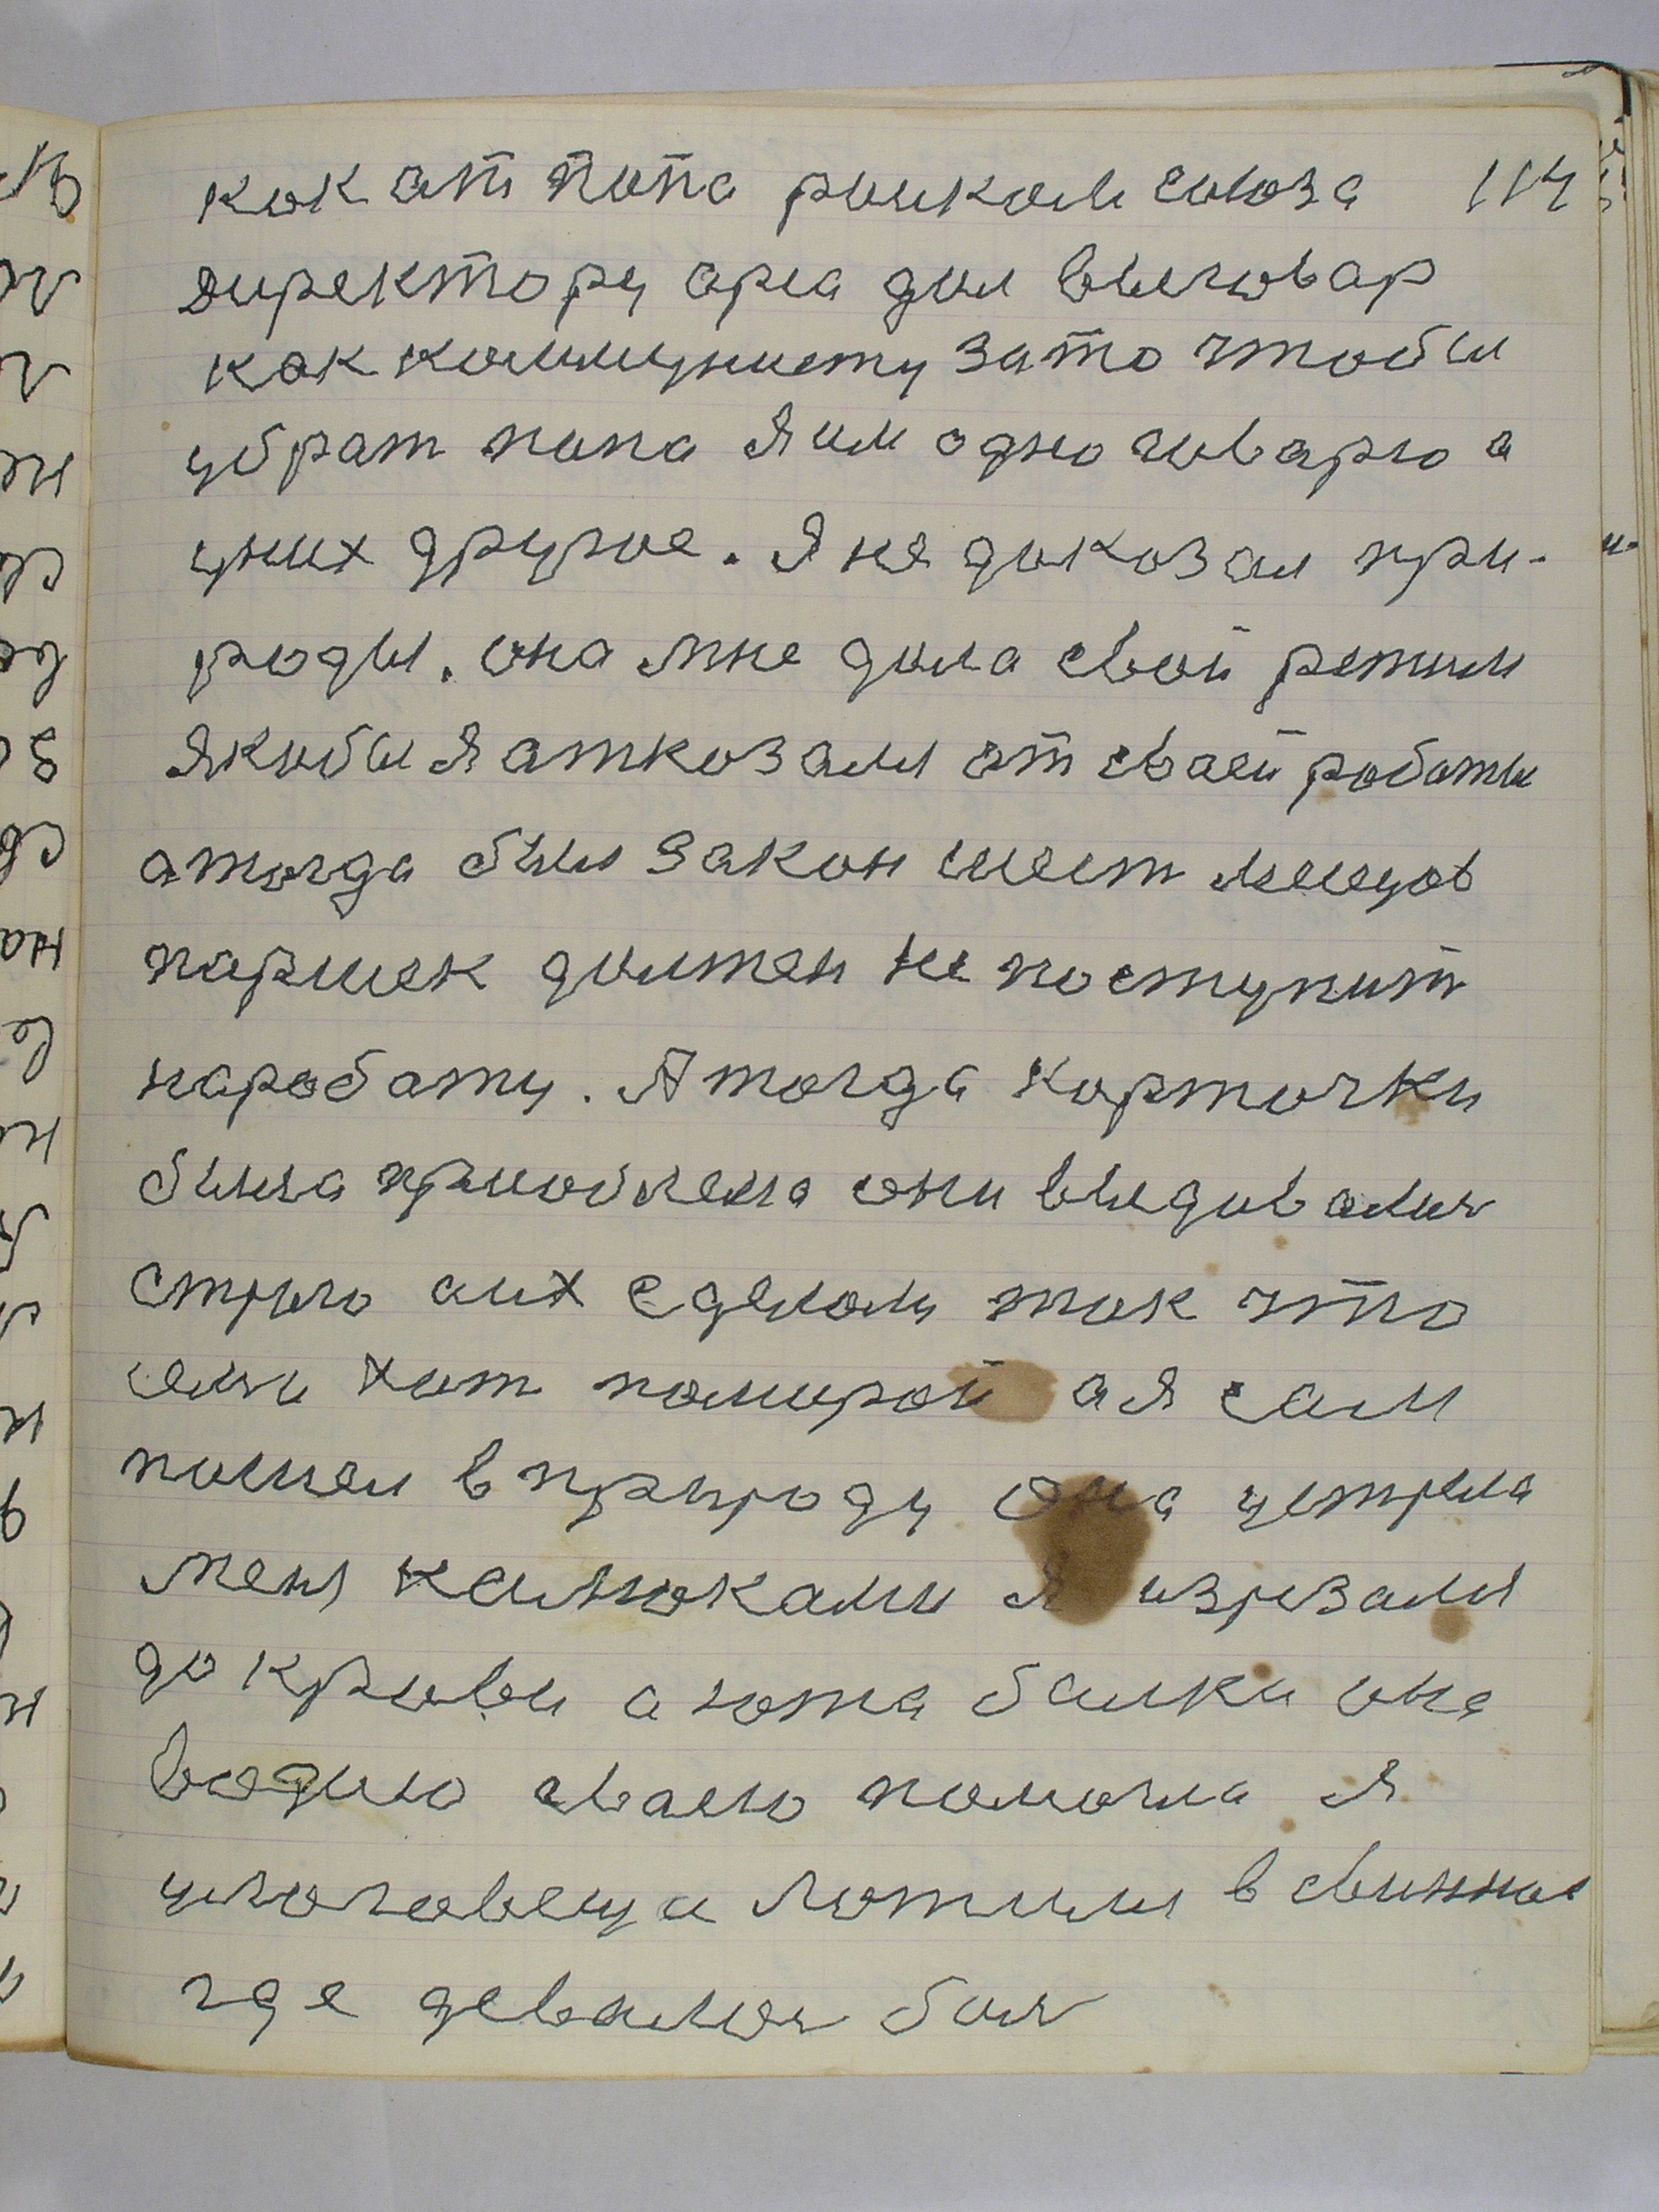 как ат попа райком союза 114
директору орса дал выговар
как коммунисту зато чтобы
убрат попа Я им одно говарю а
уних другое. Я не доказал при-
роды. она мне дала свой режим
Якобы Я атказался ат сваей работы
а тогда был закон шест месецов
паршек должен не поступит
наработу. А тогда карточки
была проблема они выдивалис
строго а их сделали так что
хот помирой а я сам
пошел в природу она устрела
меня калюками я изрезался
до крови а потом балки она
водою сваею помогла я
улоговеща ложился в свинное
где девалося бол